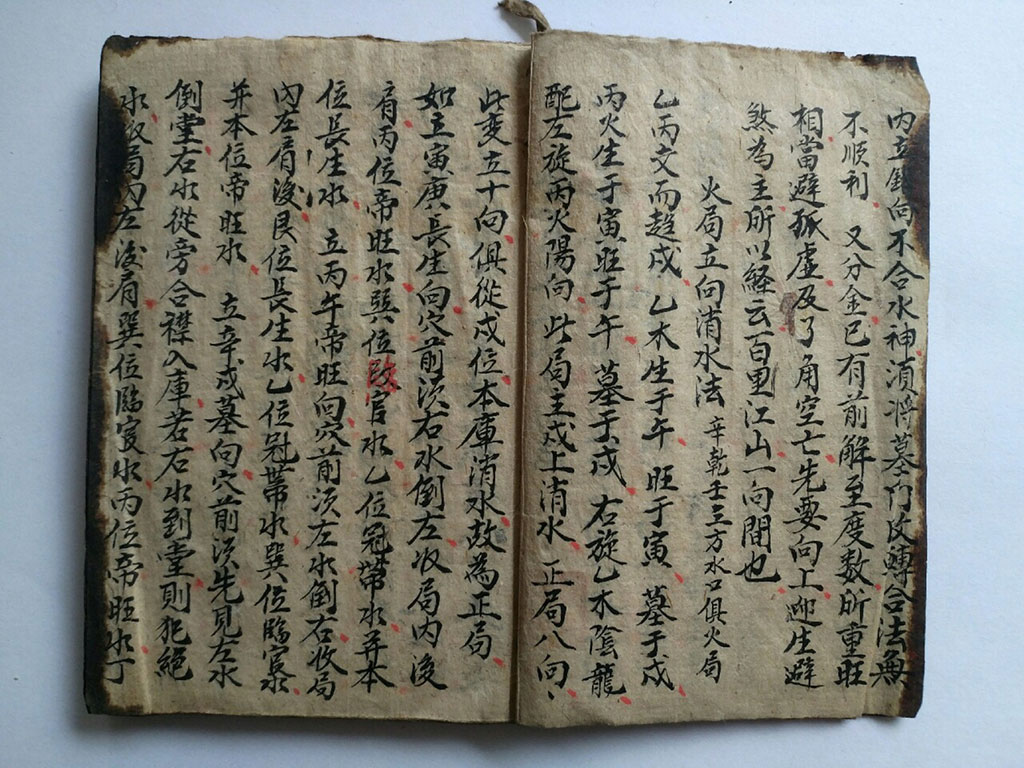 内立向不合水神須将墓门改轉合法無
不順利　又分金已有前解至度数所重旺
相當避孤虚及了角空亡先要向上迎生避
煞為主所以経云百里江山一向間也
火局立向消水法　辛乾壬三方水口俱火局
乙丙交而趍戍　乙木生于午　旺于寅　墓于戍
丙火生于寅旺于午　墓于戍　右旋乙木陰龍
配左旋丙火陽向　此局主戍上消水　正局八向
此変立十向俱從戍位本庫消水故為正局
如立寅庚長生向穴前湏右水倒左収局内後
肩丙位帝旺水巽位臨官水乙位冠帶水并本
位長生水　立丙午帝旺向穴前湏左水倒右收局
内左肩後艮位長生水乙位冠帶水巽位臨官水
并本位帝旺水　立辛戍墓向穴前湏先見左水
倒堂右水從旁合襟入庫若右水到堂則犯絕
水収局内左後肩巽位臨官水丙位帝旺水丁